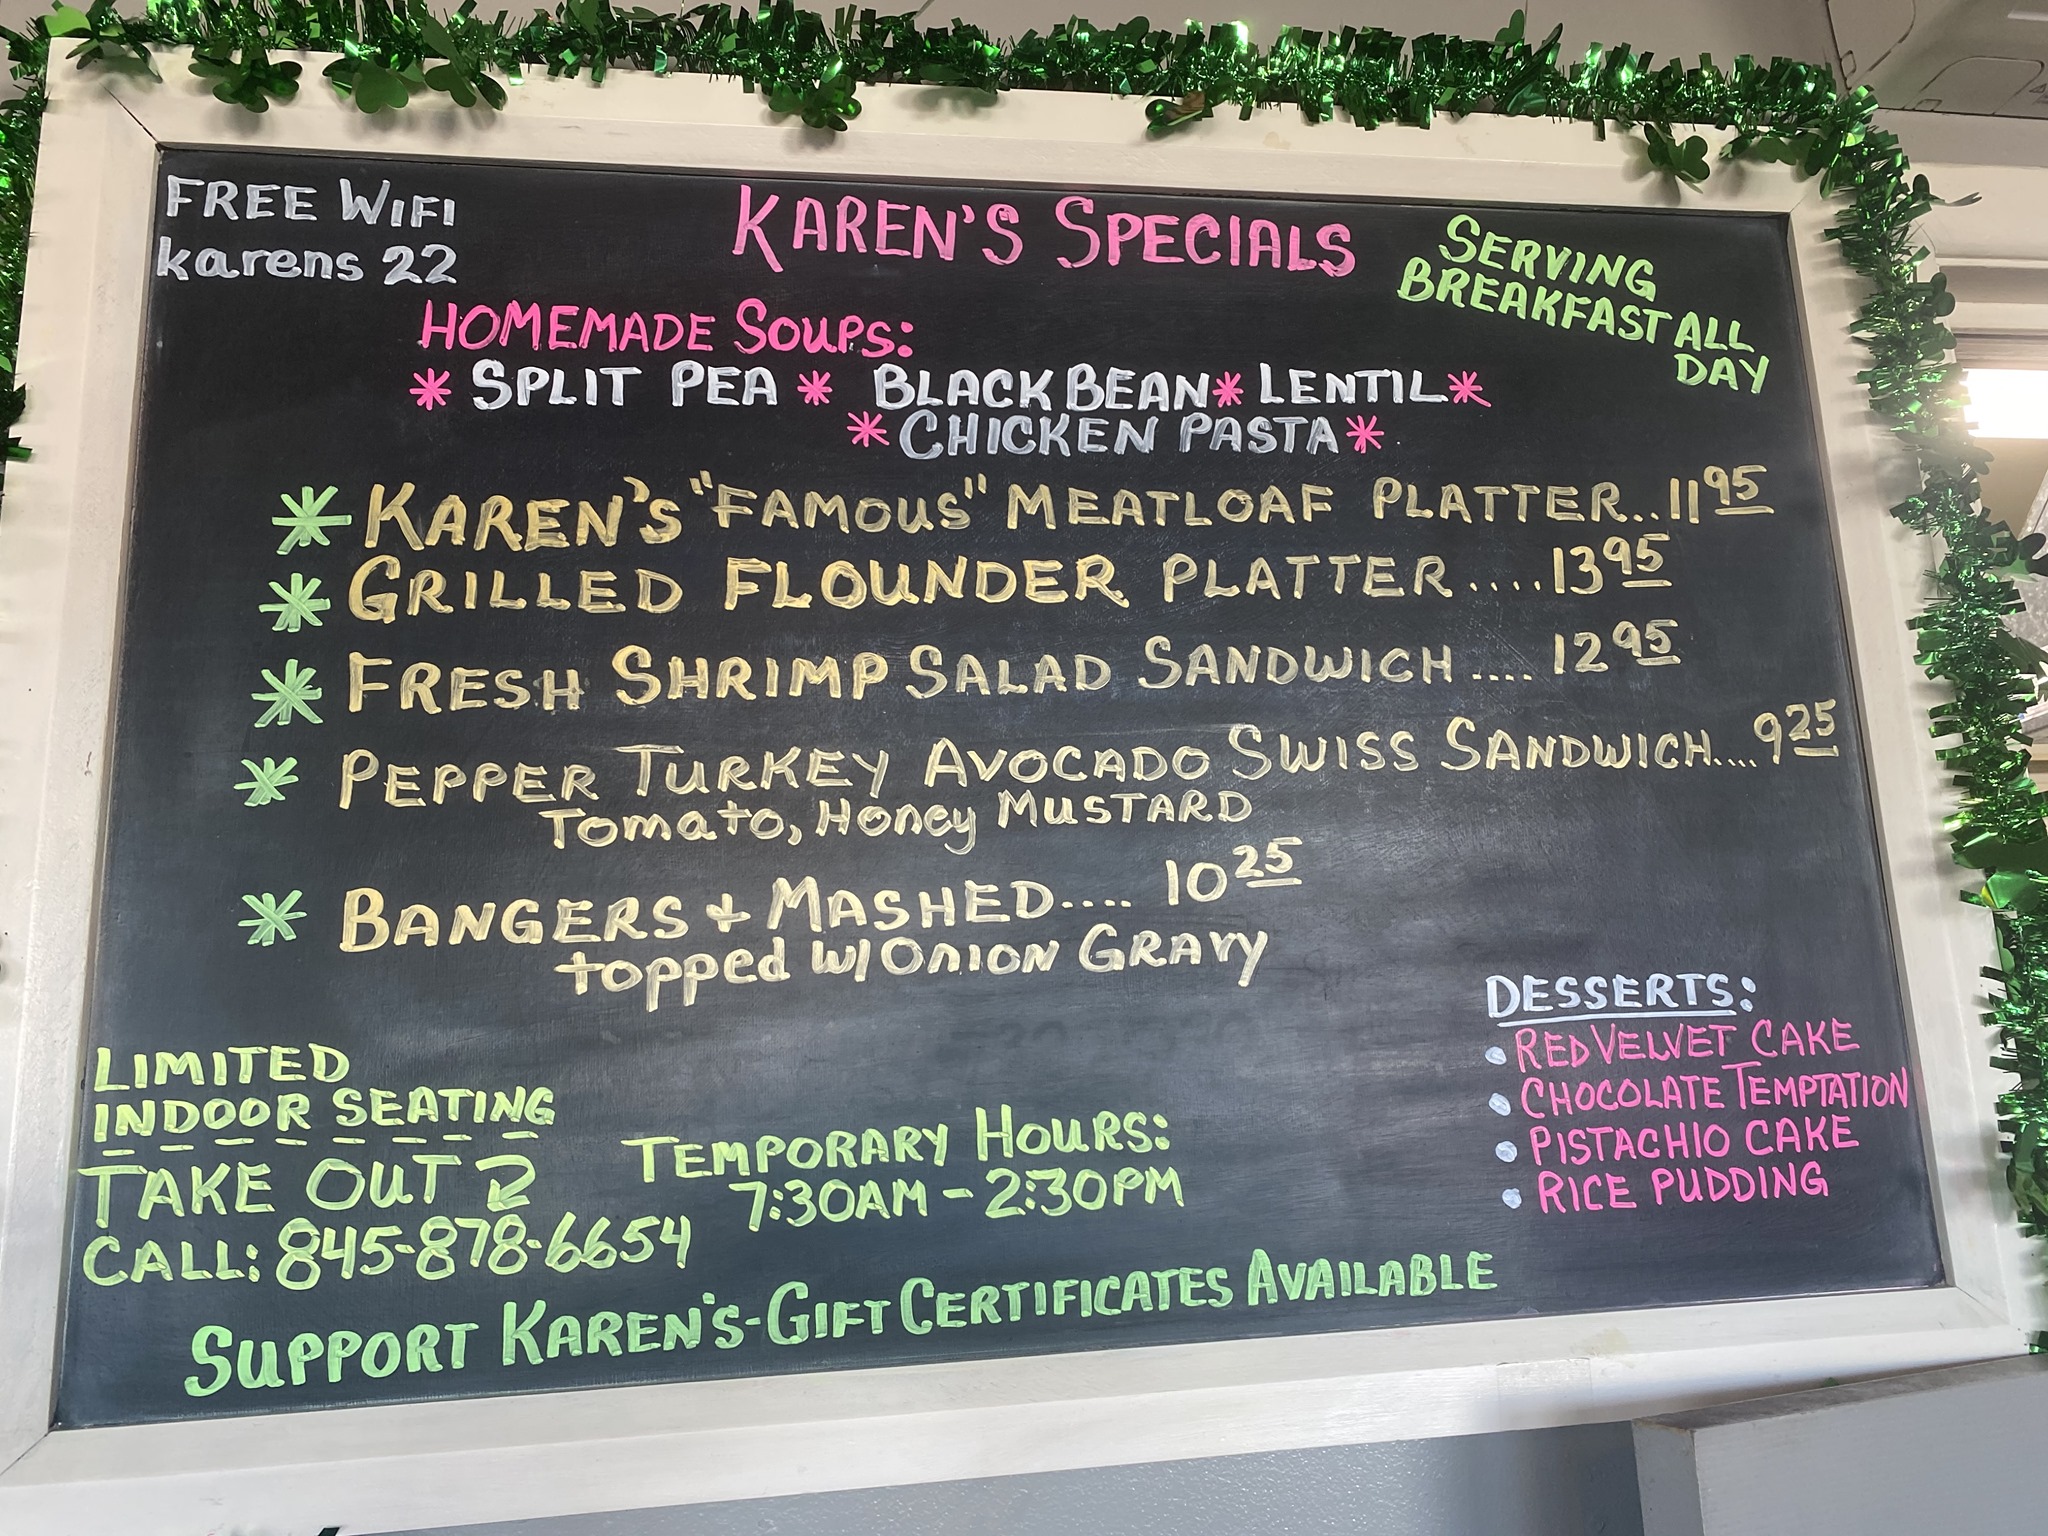 FREE WIFI
karens 22
KAREN'S SPECIALS
SERVING
BREAKFAST ALL
DAY
HOMEMADE SOUPS:
* SPLIT PEA * BLACK BEAN * LENTIL *
* CHICKEN PASTA *
* KAREN'S "FAMOUS" MEATLOAF PLATTER..11 95
* GRILLED FLOUNDER PLATTER....13 95
* FRESH SHRIMP SALAD SANDWICH....12 95
* PEPPER TURKEY AVOCADO SWISS SANDWICH....9 25
Tomato, Honey MUSTARD
* BANGERS + MASHED.... 10 25
topped W/ONION GRAVY
LIMITED
INDOOR SEATING
TAKE OUT
CALL: 845-878-6654
TEMPORARY HOURS:
7:30AM - 2:30PM
DESSERTS:
• RED VELVET CAKE
• CHOCOLATE TEMPTATION
• PISTACHIO CAKE
• RICE PUDDING
SUPPORT KAREN'S-GIFT CERTIFICATES AVAILABLE